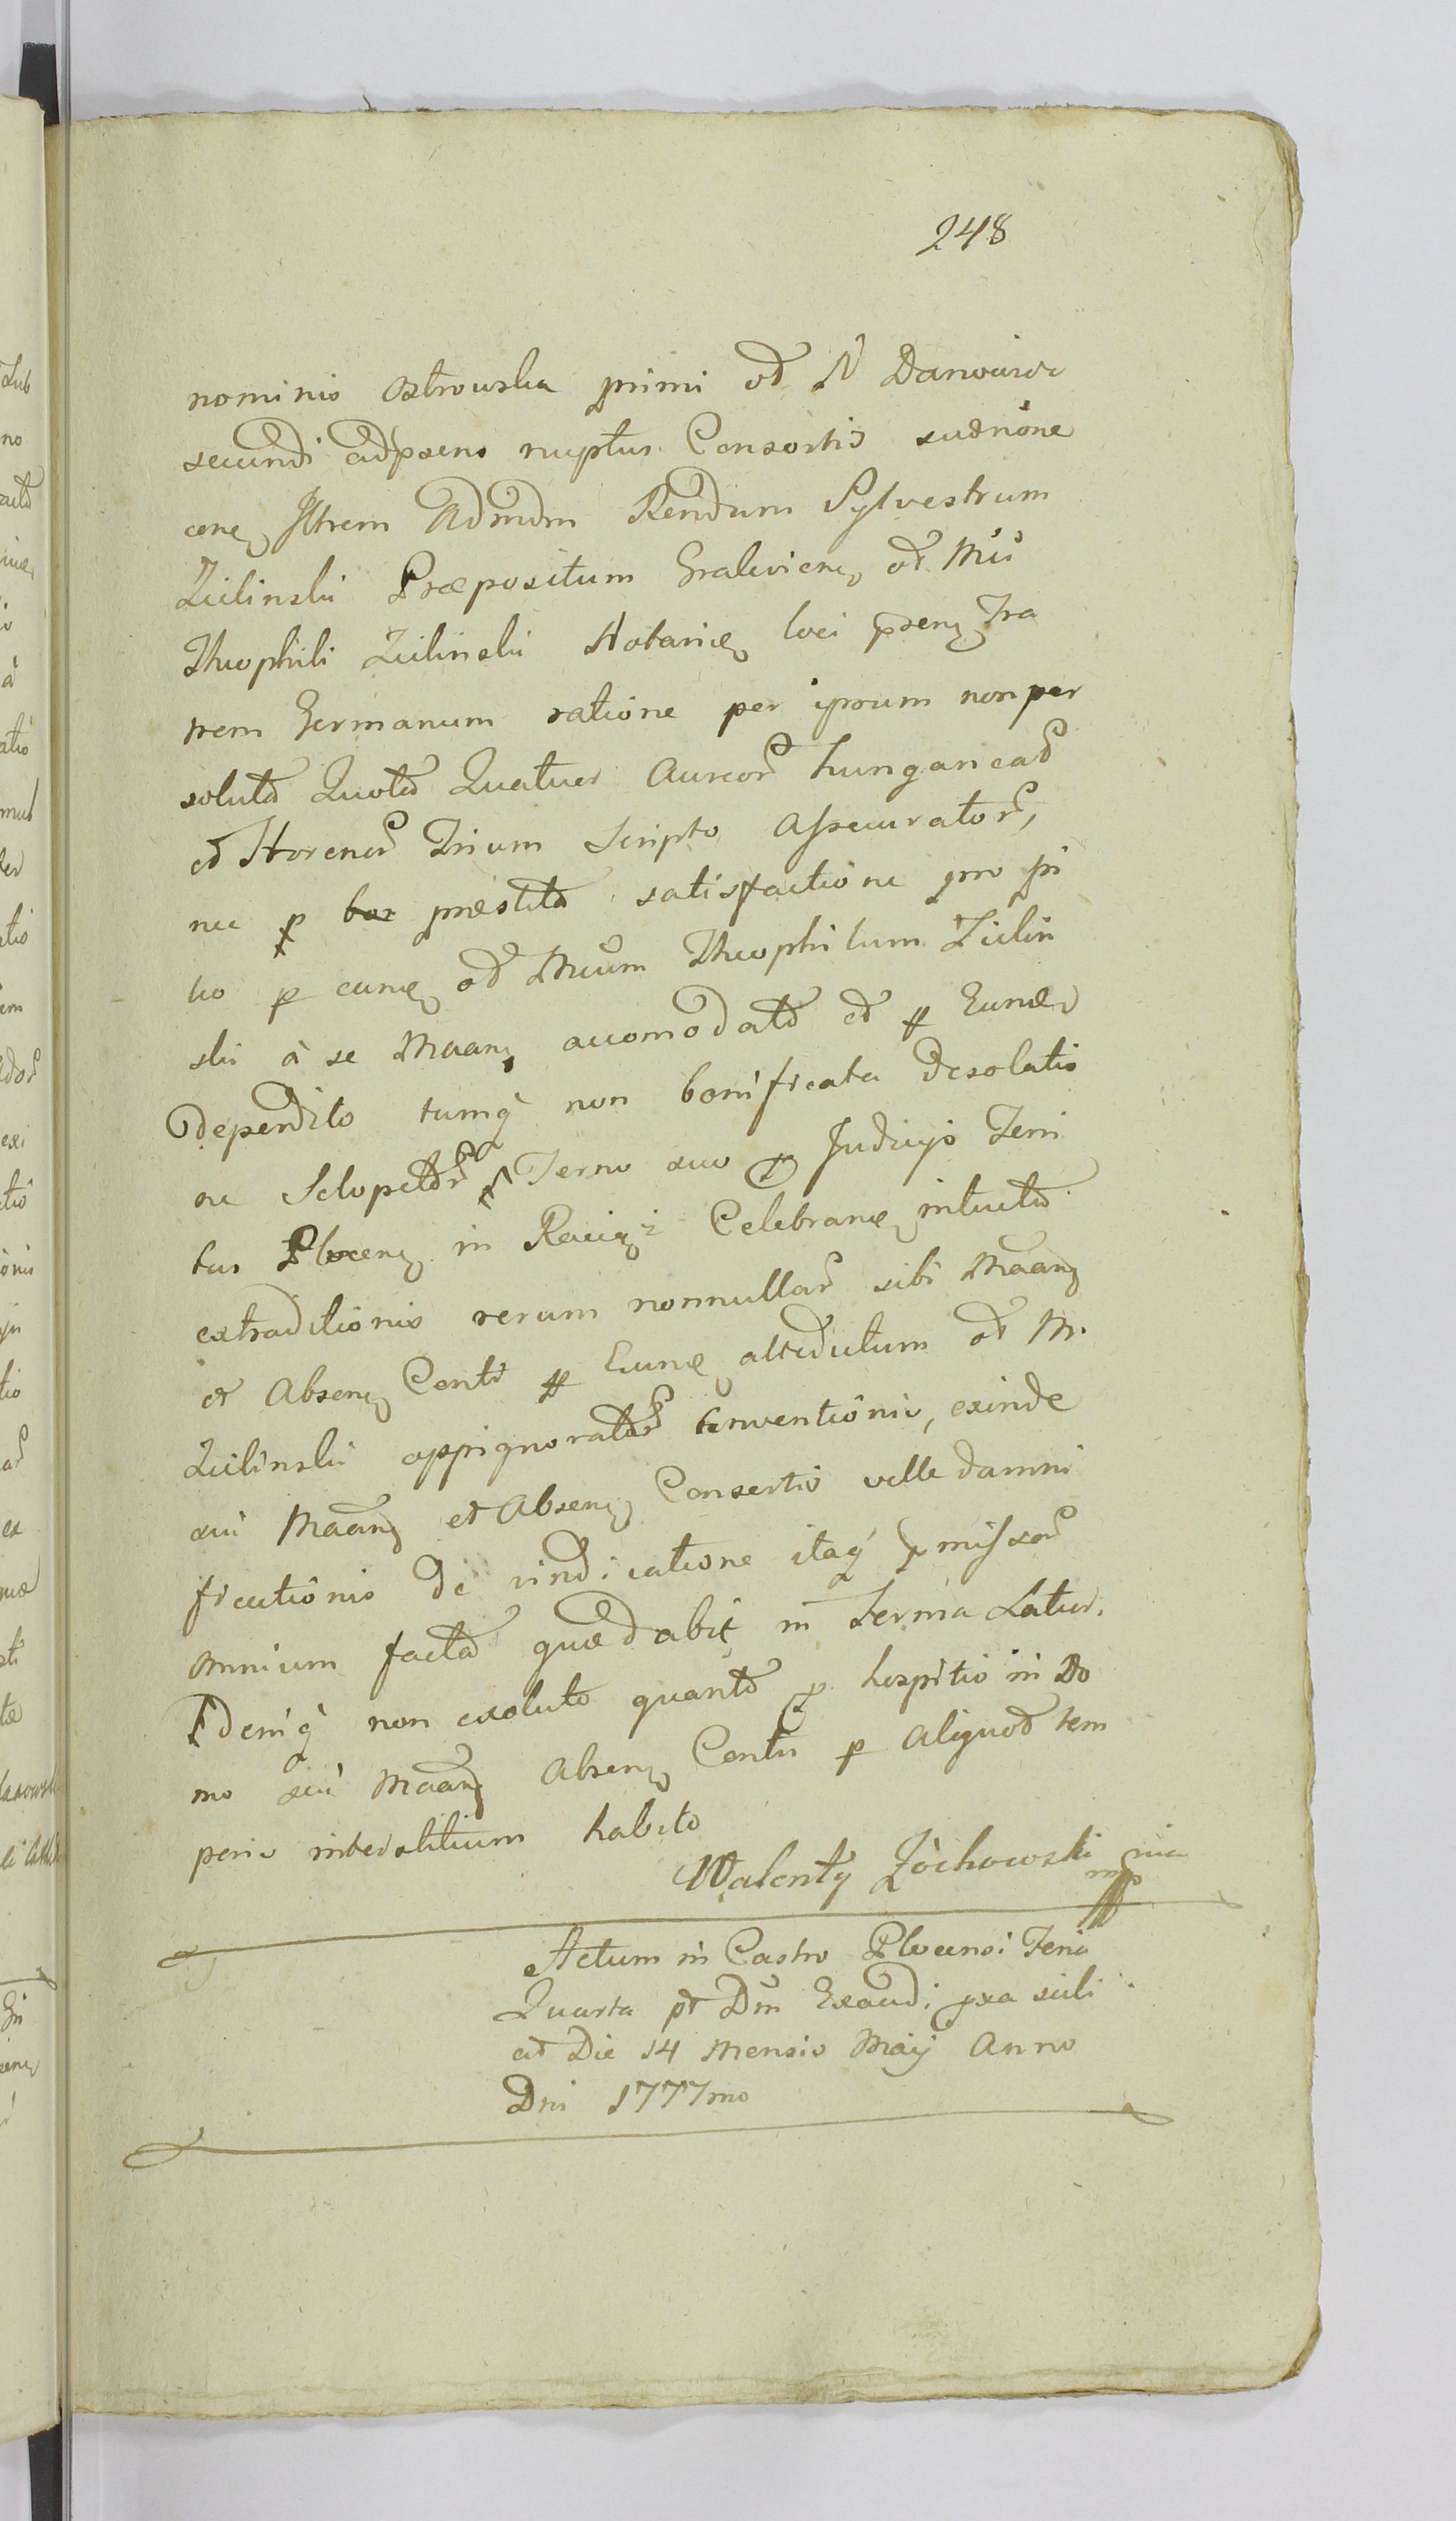 248
nominis Ostrowska primi et N
secundi adpsens nuptur Consortis suae nōne
cens Illrem Admdm Rendum Sylvestrum
Zielinski Præpositum Gralevicens et Mci
Theophili Zielinski Notarii loci psens Fra
trem Germanum ratione per ipsum non per
soluta Quota Quatuor Aureor hungaricaℓ
et Florenor Trium Scripto Assecurator,
nec p hoc præstita satisfactione pro
p eund et Mcum Theophilum Zielin
ski à se Maany accomodato et p Eund
deperdito tumq non bonificata desolatio
ne Sclopetor Terno suo Judicijs Terri
tus Plocens in Raciąż Celebrand intuitu
extraditionis rerum nonnullar sibi Maany
et Absens Conti p Eund attedutum et M.
Zielinski appignorator conventionis, exinde
sui Maany et Absens Consortis velle damni
ficationis de vindicatione itaq pmissor
omnium facta quæ dabit in Termia Latur.
Idemq non exoluto quanto p hospitio in Do
mo sui Maany Absens Contis p aliquod tem
poris interstitium habito
Walenty Żochowski mp
Actum in Castro Plocensi Feria
Quarta pt Dm Exaudi pxa scili
cet Die 14 Mensis Maij Anno
Dni 1777mo